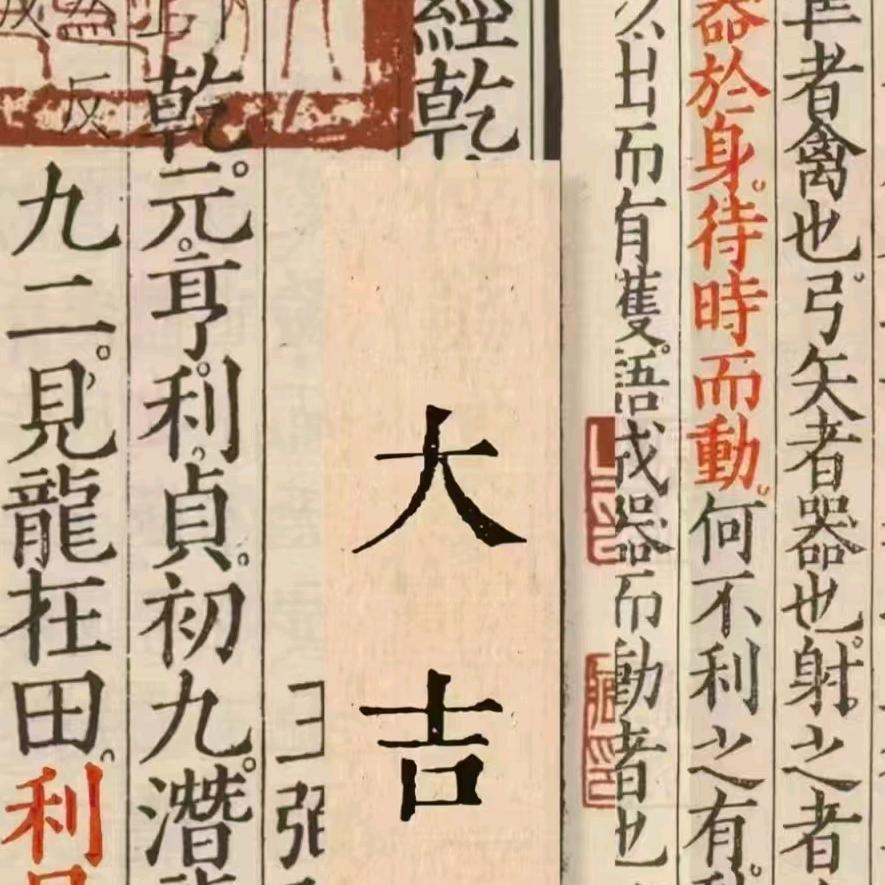 隼者禽也。弓矢者器也。射之者
器於身。待時而動。何不利之有
以出而有獲。語成器而動者也
經乾
大吉
王弼
乾元。亨。利。貞。初九。潛
反
九二。見龍在田。利